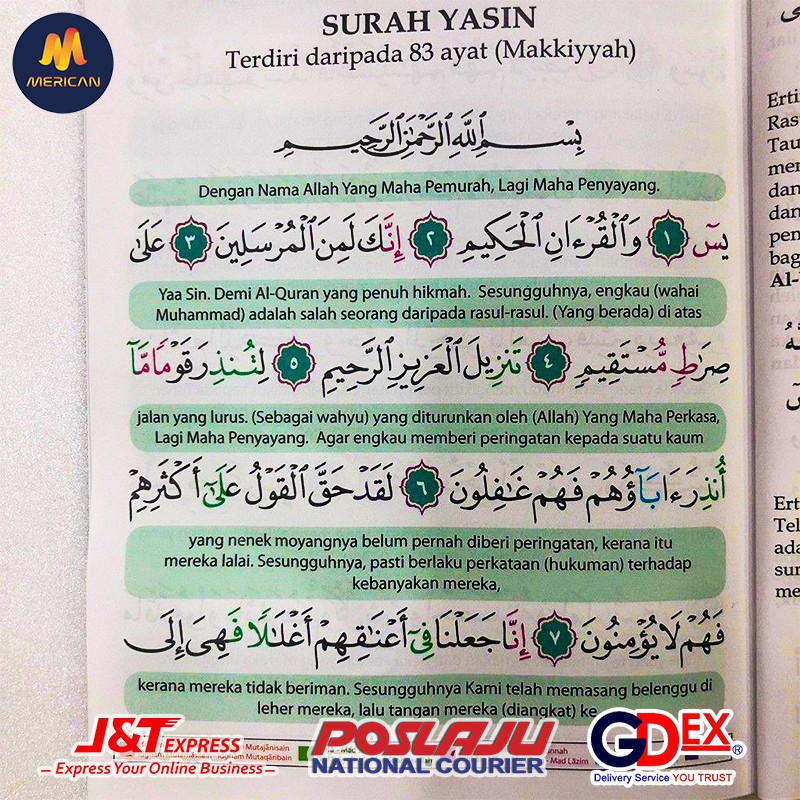 MERICAN
SURAH YASIN
Terdiri daripada 83 ayat (Makkiyyah)
بِسْمِ ٱللَّهِ ٱلرَّحْمَٰنِ ٱلرَّحِيمِ
Dengan Nama Allah Yang Maha Pemurah, Lagi Maha Penyayang.
يسٓ ١ وَٱلْقُرْءَانِ ٱلْحَكِيمِ ٢ إِنَّكَ لَمِنَ ٱلْمُرْسَلِينَ ٣ عَلَىٰ
Yaa Sin. Demi Al-Quran yang penuh hikmah. Sesungguhnya, engkau (wahai
Muhammad) adalah salah seorang daripada rasul-rasul. (Yang berada) di atas
صِرَٰطٍ مُّسْتَقِيمٍ ٤ تَنزِيلَ ٱلْعَزِيزِ ٱلرَّحِيمِ ٥ لِتُنذِرَ قَوْمًا مَّآ
jalan yang lurus. (Sebagai wahyu) yang diturunkan oleh (Allah) Yang Maha Perkasa,
Lagi Maha Penyayang. Agar engkau memberi peringatan kepada suatu kaum
أُنذِرَ ءَابَآؤُهُمْ فَهُمْ غَٰفِلُونَ ٦ لَقَدْ حَقَّ ٱلْقَوْلُ عَلَىٰٓ أَكْثَرِهِمْ
yang nenek moyangnya belum pernah diberi peringatan, kerana itu
mereka lalai. Sesungguhnya, pasti berlaku perkataan (hukuman) terhadap
kebanyakan mereka,
فَهُمْ لَا يُؤْمِنُونَ ٧ إِنَّا جَعَلْنَا فِىٓ أَعْنَٰقِهِمْ أَغْلَٰلًا فَهِىَ إِلَى
kerana mereka tidak beriman. Sesungguhnya Kami telah memasang belenggu di
leher mereka, lalu tangan mereka (diangkat) ke
Mutajânisain
Mutaqâribain
Mad Lâzim
J&T EXPRESS
Express Your Online Business
POSLAJU
NATIONAL COURIER
GDEX
Delivery Service YOU TRUST
Erti
Ras
Tau
mer
dan
dan
pen
bag
Al-
Ert
Tel
ada
sur
me